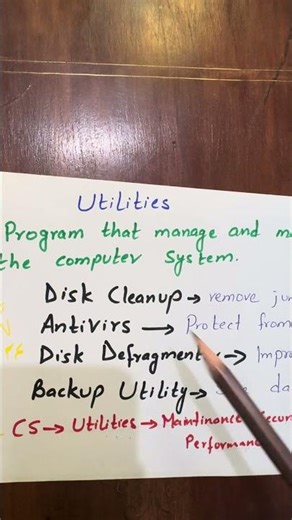 Utilities
Program that manage and m
the computer System.
Disk Cleanup → remove jun
Antivirs → Protect from
Disk Defragmente → Impr
Backup Utility → da
CS → Utilities → Maintinance Secur
Performan